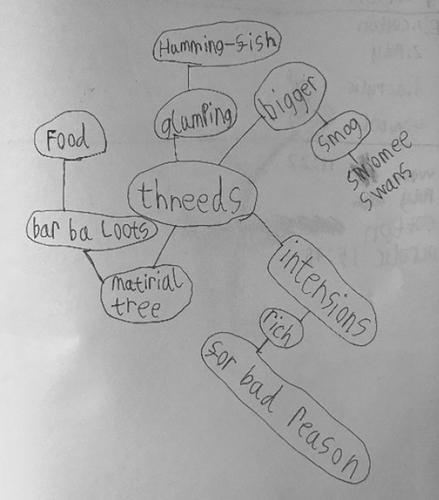 Humming-fish
glumping
bigger
smog
swomee
swans
Food
thneeds
bar ba Loots
matirial
tree
intensions
rich
for bad reason